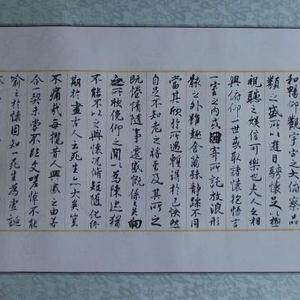 和暢仰觀宇宙之大俯察品
類之盛所以遊目騁懷足以極
視聽之娛信可樂也夫人之相
與俯仰一世或取諸懷抱悟言
一室之内或因寄所託放浪形
骸之外雖趣舍萬殊靜躁不同
當其欣於所遇暫得於己怏然
自足不知老之將至及其所之
既惓情隨事遷感慨係之矣向
之所欣俛仰之間以為陳迹猶
不能不以之興懷況脩短隨化終
期於盡古人云死生亦大矣豈
不痛哉每攬昔人興感之由若
合一契未嘗不臨文嗟悼不能
喻之於懷固知一死生為虛誕